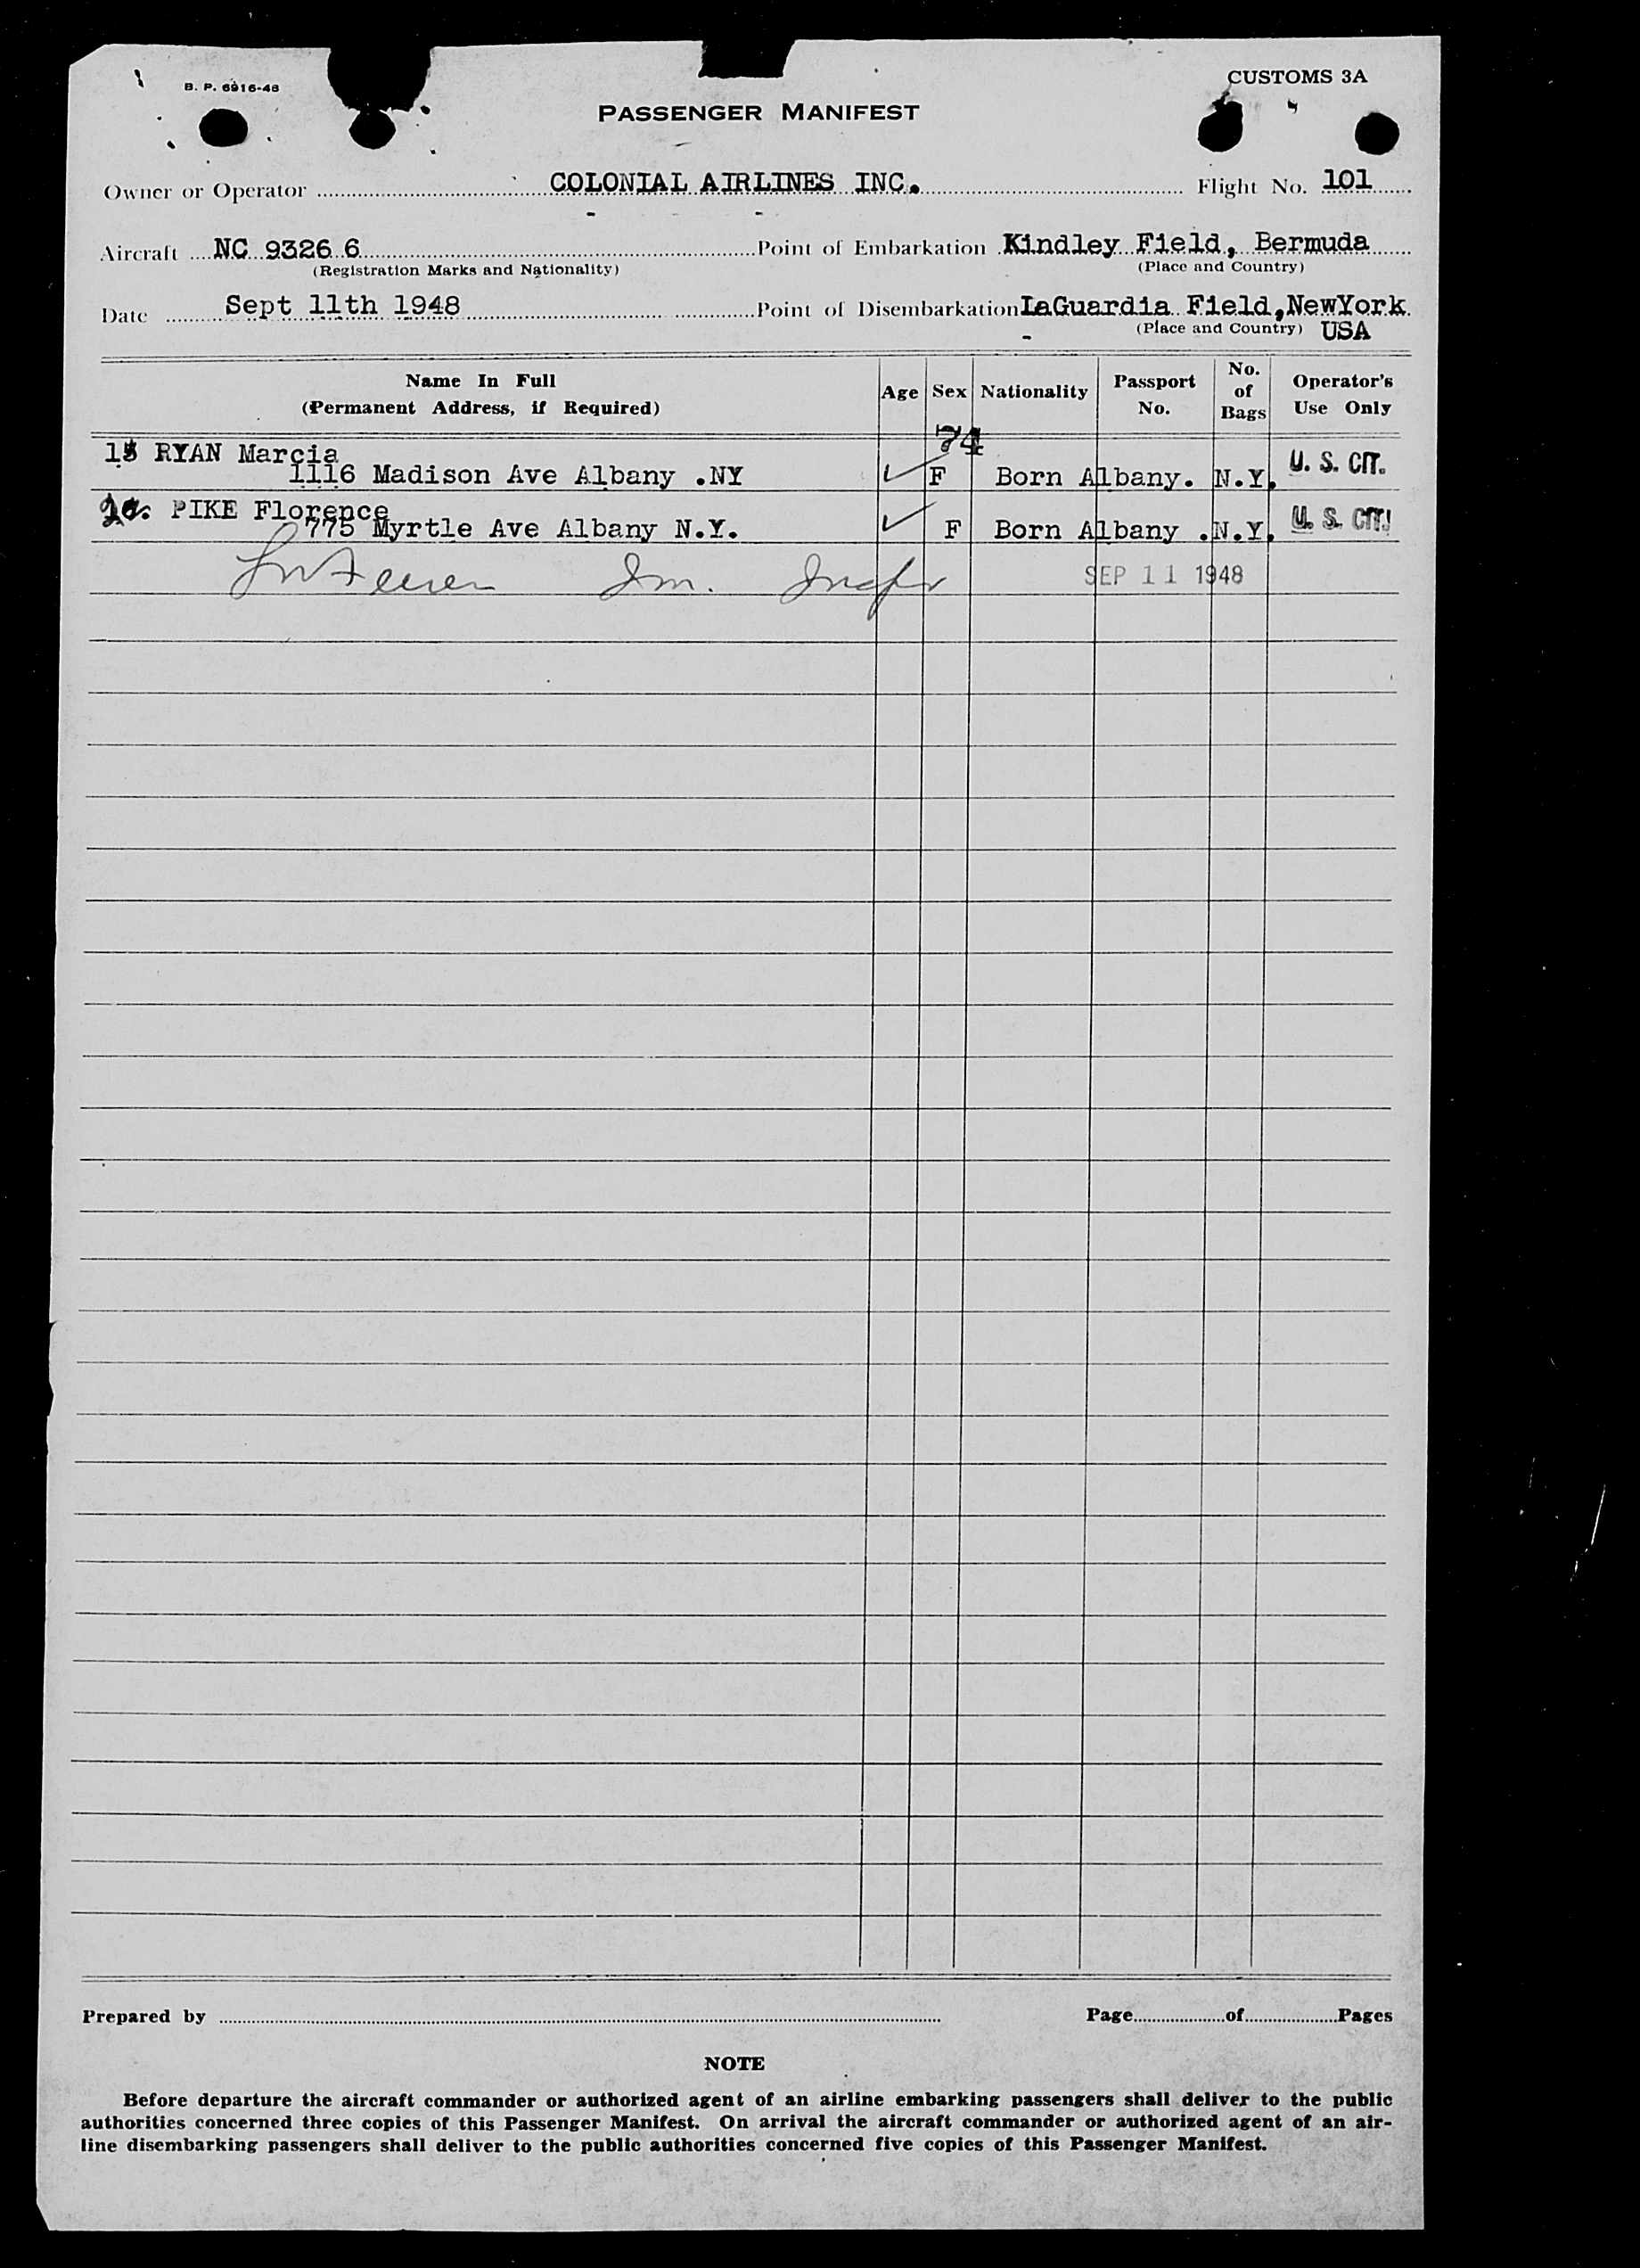 B. P. 6916-48
CUSTOMS 3A
PASSENGER MANIFEST
Owner or Operator COLONIAL AIRLINES INC. Flight No. 101
Aircraft NC 9326 6 Point of Embarkation Kindley Field, Bermuda
(Registration Marks and Nationality) (Place and Country)
Date Sept 11th 1948 Point of Disembarkation LaGuardia Field,NewYork
(Place and Country) USA
Name In Full (Permanent Address, if Required) Age Sex Nationality Passport No. No. of Bags Operator's Use Only
74
RYAN Marcia
1116 Madison Ave Albany .NY F Born Albany. N.Y. U. S. CIT.
PIKE Florence
775 Myrtle Ave Albany N.Y. F Born Albany .N.Y. U. S. CIT.
Im. Inspr SEP 11 1948
Prepared by Page of Pages
NOTE
Before departure the aircraft commander or authorized agent of an airline embarking passengers shall deliver to the public
authorities concerned three copies of this Passenger Manifest. On arrival the aircraft commander or authorized agent of an air-
line disembarking passengers shall deliver to the public authorities concerned five copies of this Passenger Manifest.